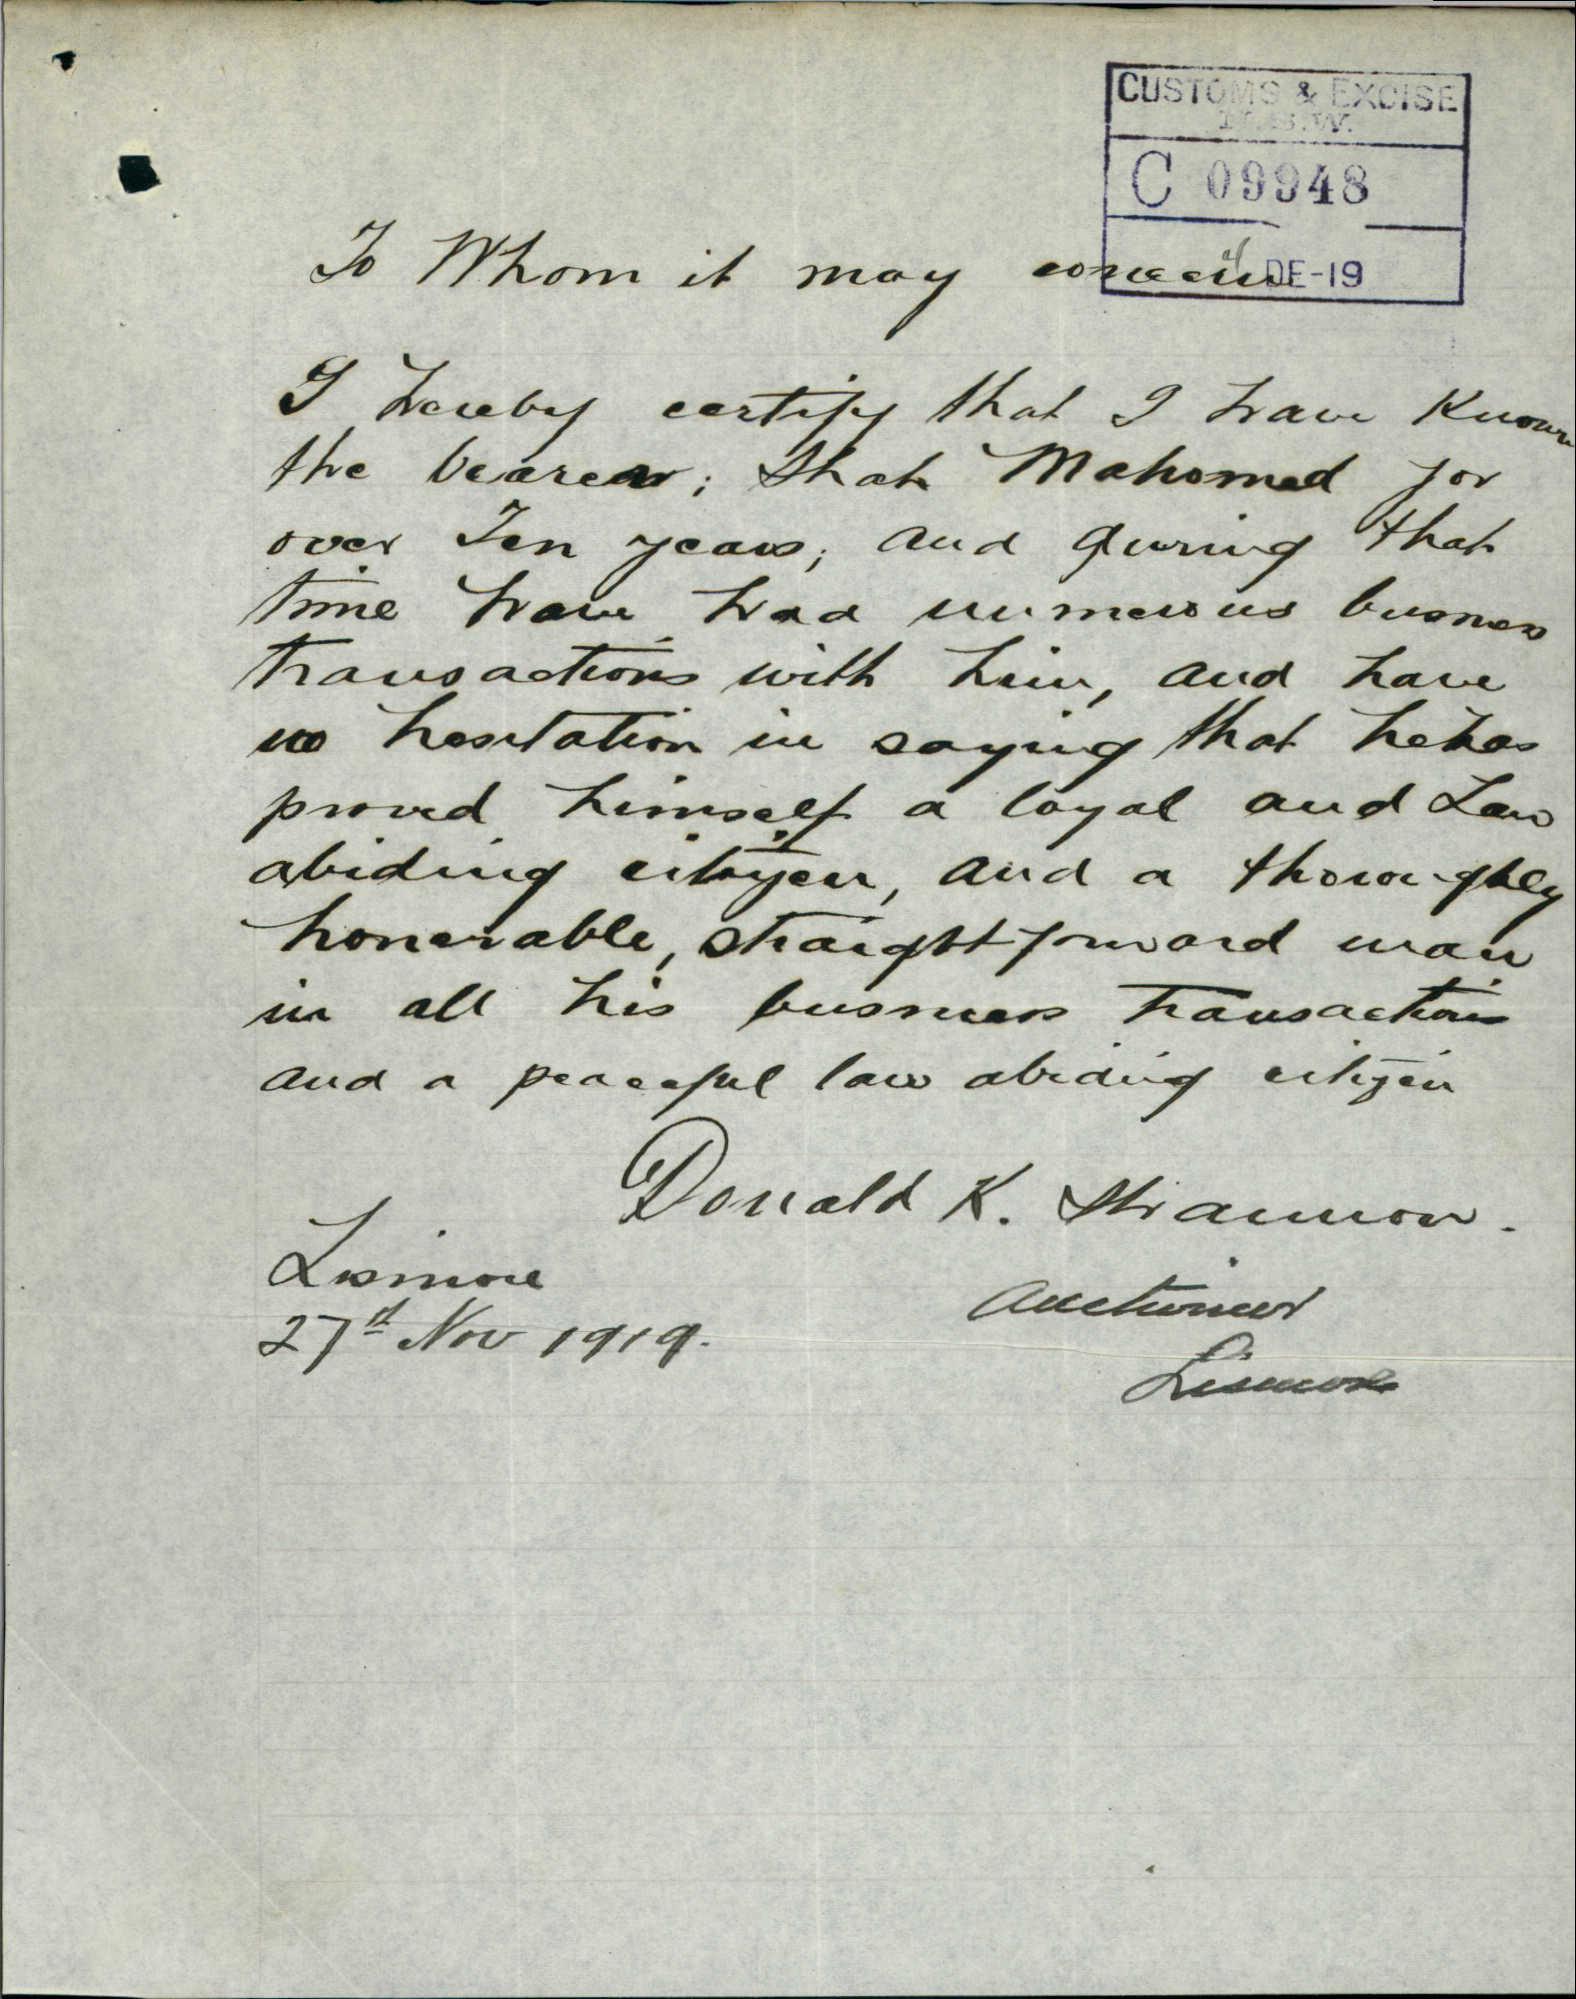 CUSTOMS & EXCISE
N.S.W.
C 09948
DE-19
To Whom it may concern
I hereby certify that I have Known
the bearer; Shah Mahomed for
over Ten years; and during that
time have had numerous business
transactions with him, and have
no hesitation in saying that he has
proved himself a loyal and Law
abiding citizen, and a thoroughly
honorable, straightforward man
in all his business transactions
and a peaceful law abiding citizen
Donald K. Shannon.
Lismore
27th Nov 1919.
Auctioneer
Lismore